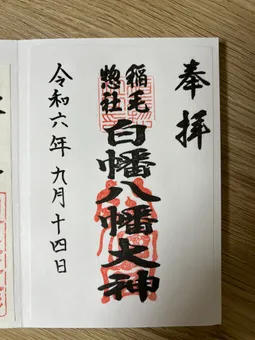 奉拝
稲毛
惣社
白幡八幡大神
令和六年九月十四日